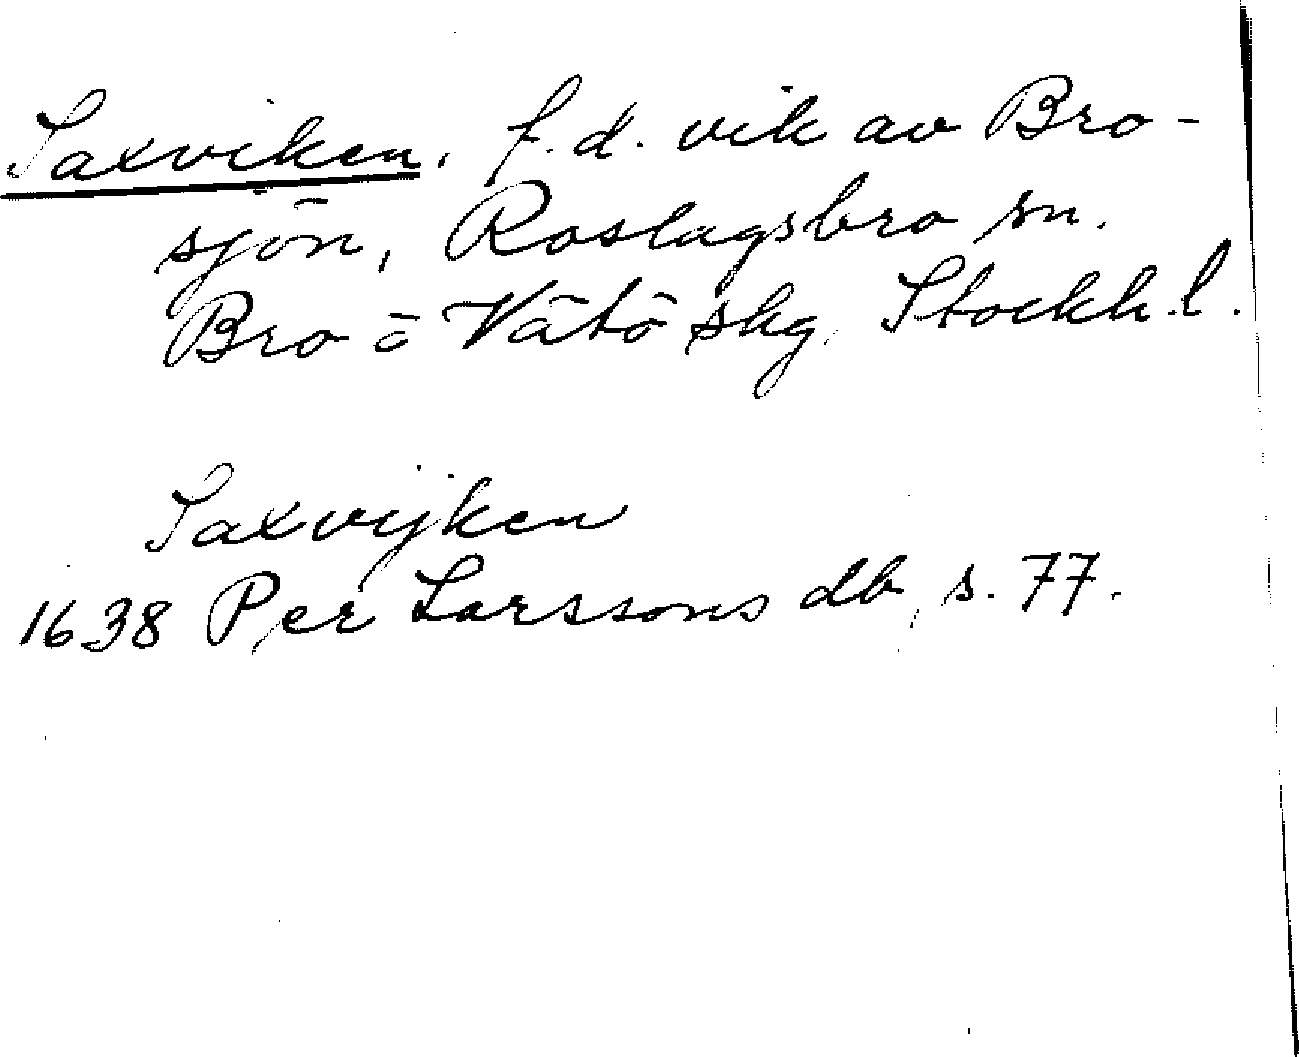 Saxviken, f.d. vik av Bro-
sjön, Roslagsbro sn.
Bro o Vätö skg, Stockh.l.
Saxvijken
1638 Per Larssons db, s. 77.